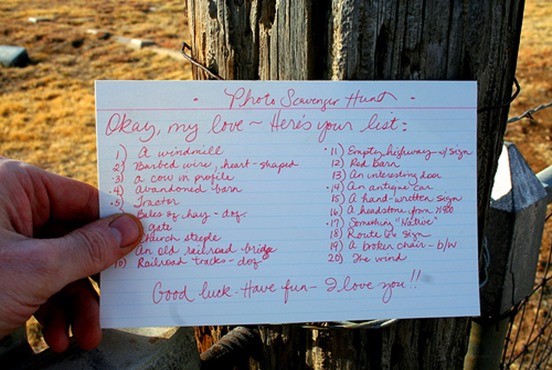 · Photo Scavenger Hunt ·
Okay, my love ~ Here's your list:
1) A windmill
2) Barbed wire, heart-shaped
·3) A cow in profile
·4) Abandoned barn
·5) Tractor
Bales of hay - dog
gate
Church steeple
An old railroad bridge
10) Railroad tracks - dog
·11) Empty highway - w/ sign
12) Red barn
13) An interesting door
·14) An antique car
15) A hand-written sign
·16) A headstone from 1900
·17) Something "Native"
18) Route 66 sign
19) A broken chair - b/w
20) The wind
Good luck - Have fun - I love you!!